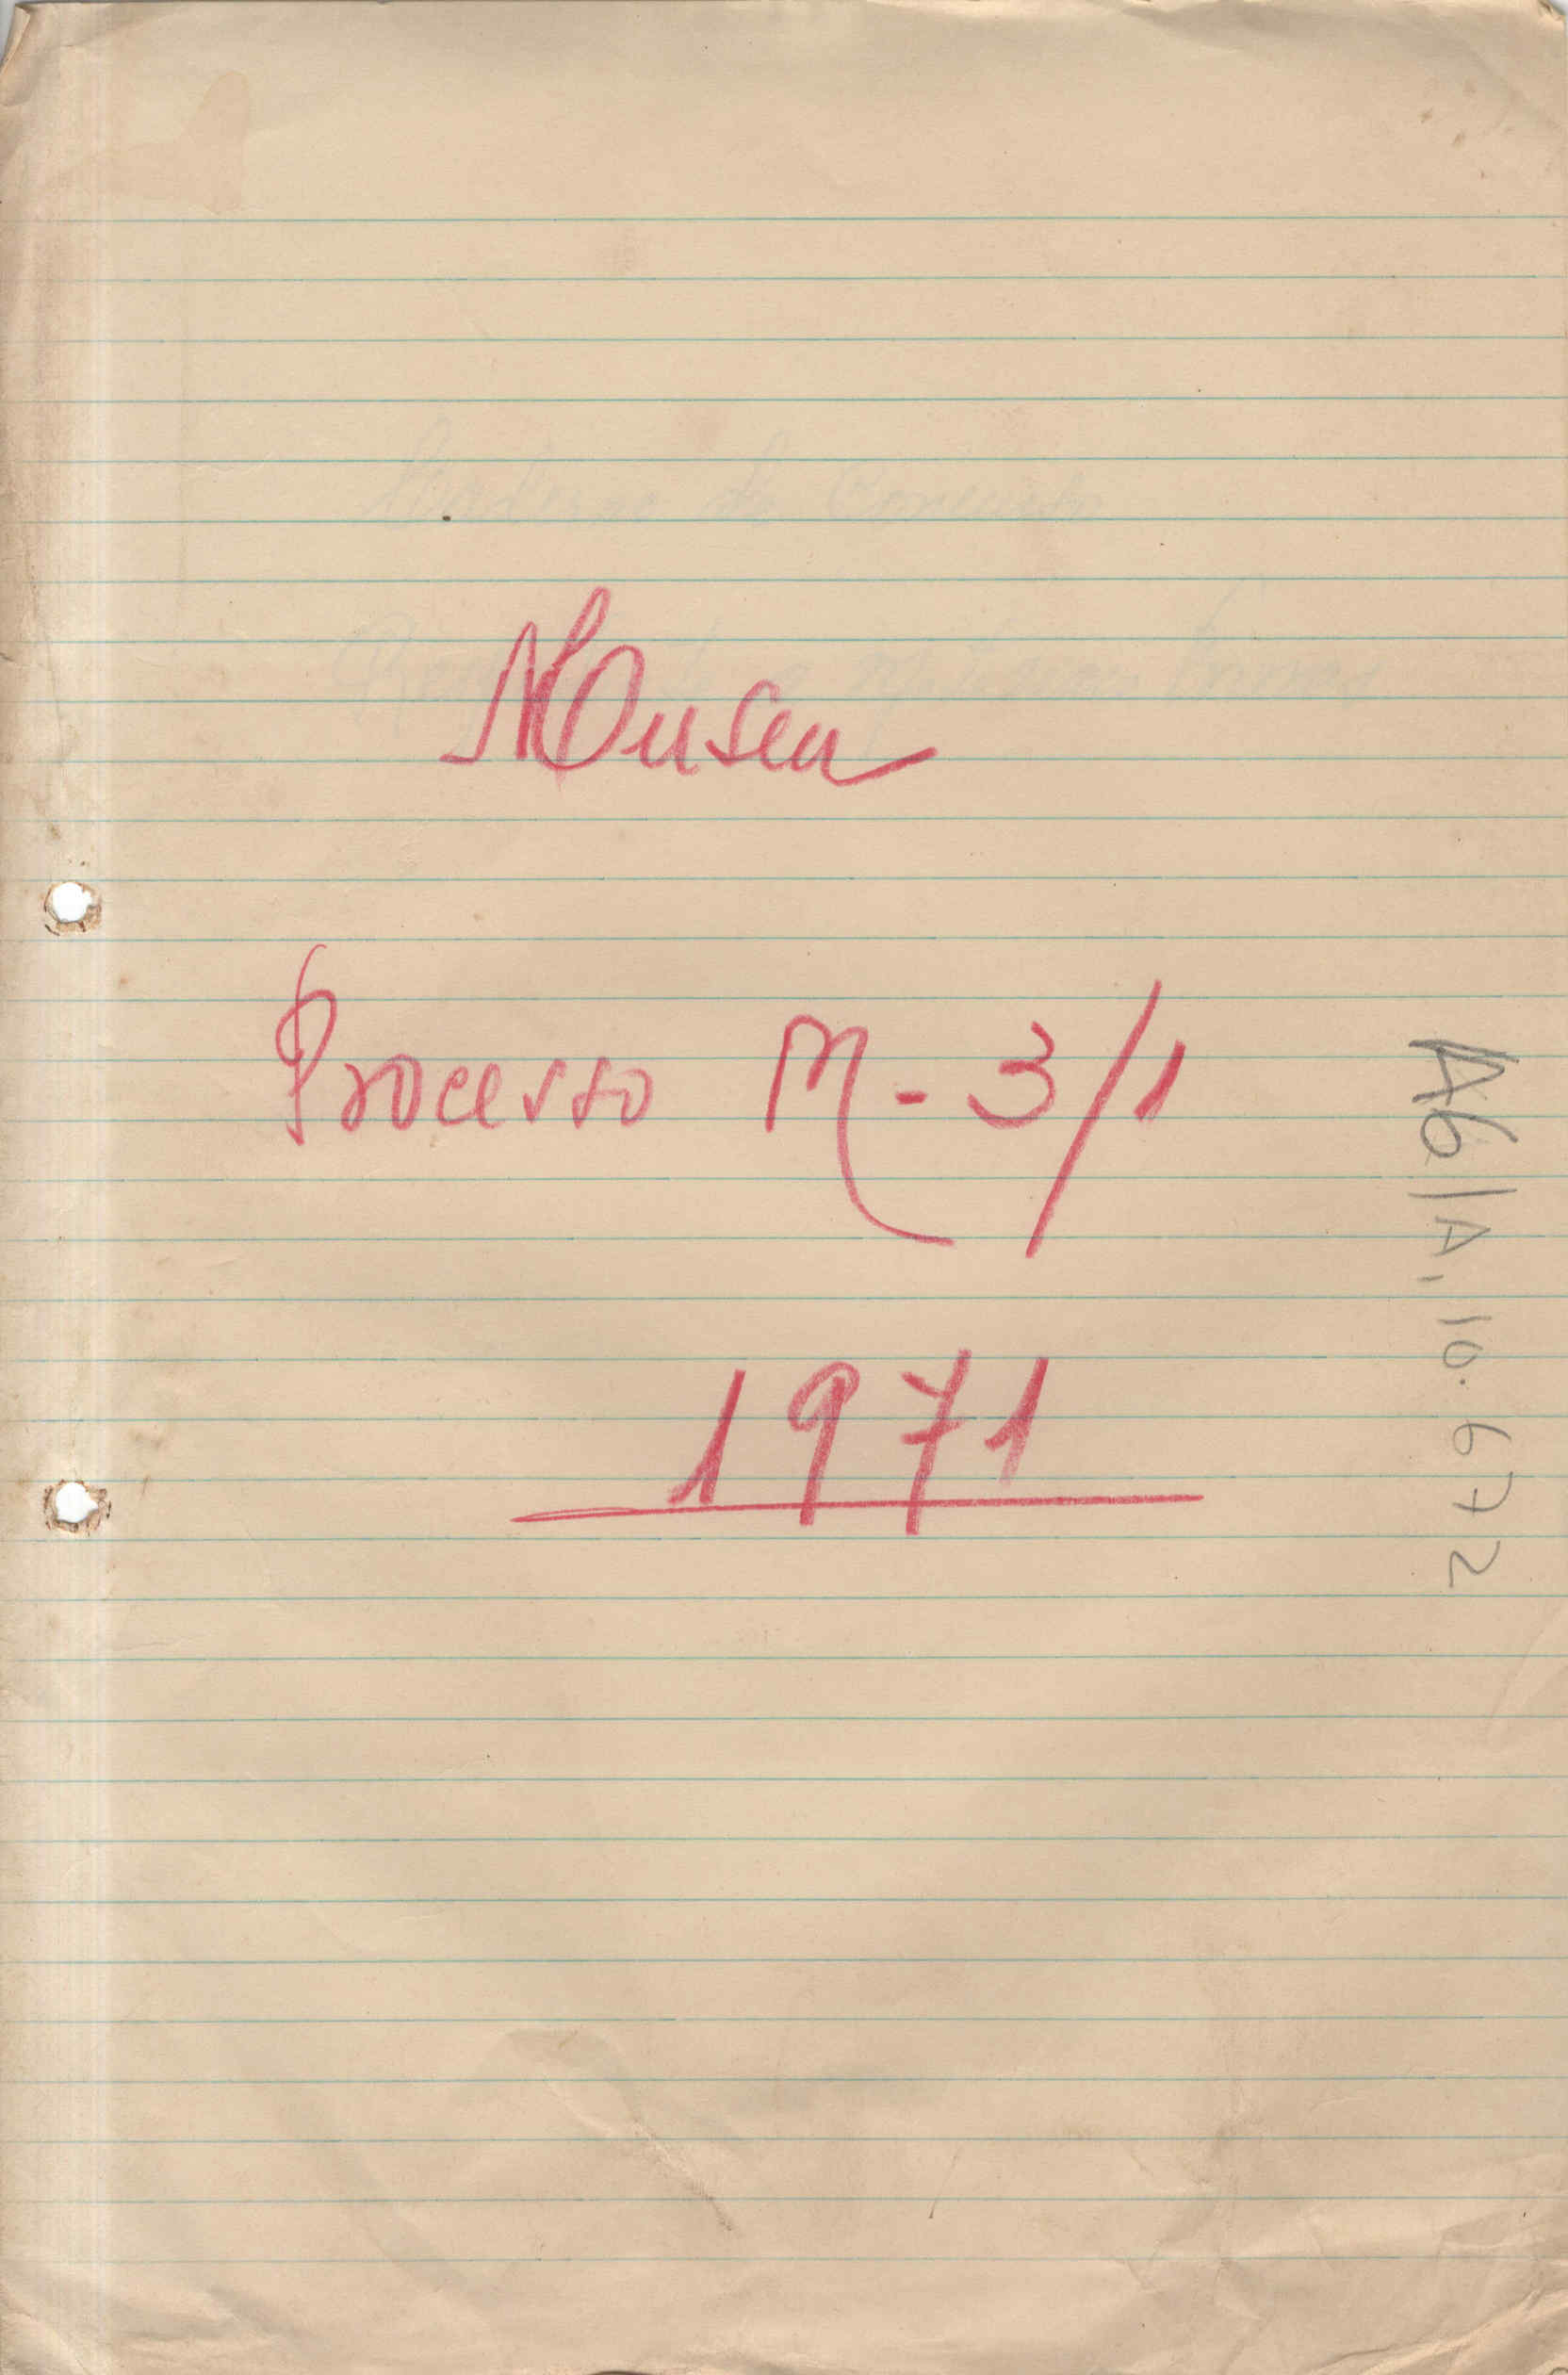 Museu
Processo M-3/1
1971
A6/A,10.672